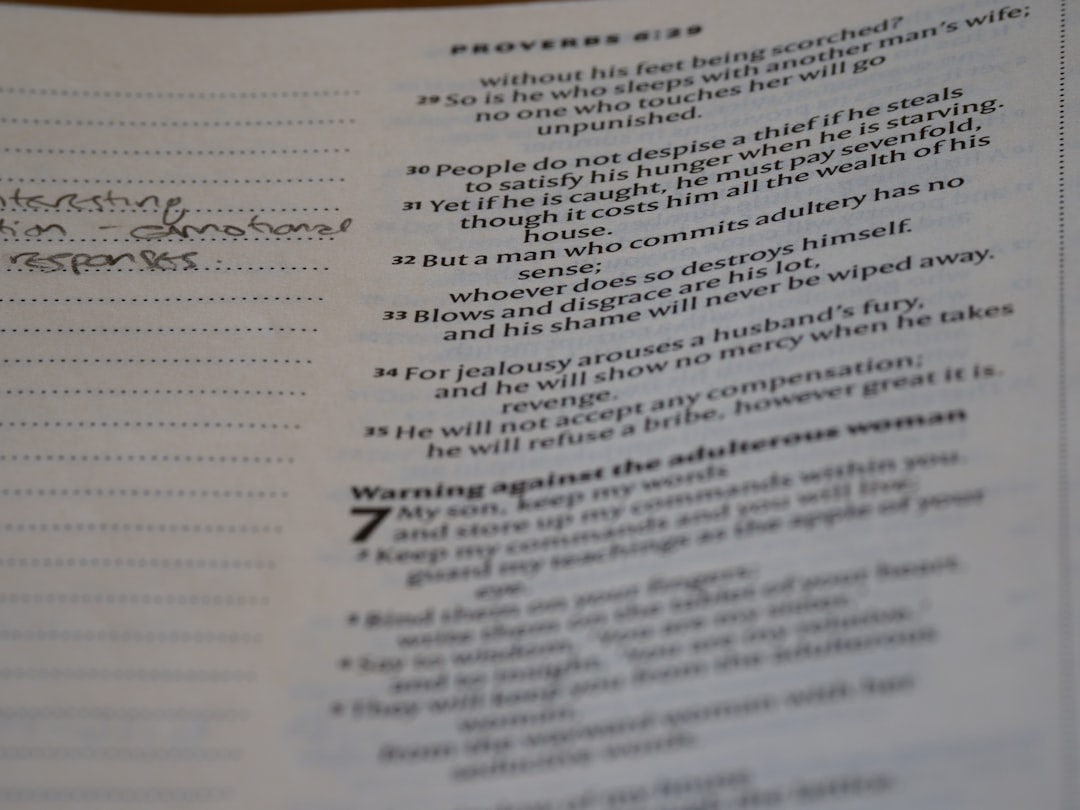 PROVERBS 6:29
interesting
tion - emotional
responses
without his feet being scorched?
29 So is he who sleeps with another man's wife;
no one who touches her will go
unpunished.
30 People do not despise a thief if he steals
to satisfy his hunger when he is starving.
31 Yet if he is caught, he must pay sevenfold,
though it costs him all the wealth of his
house.
32 But a man who commits adultery has no
sense;
whoever does so destroys himself.
33 Blows and disgrace are his lot,
and his shame will never be wiped away.
34 For jealousy arouses a husband's fury,
and he will show no mercy when he takes
revenge.
35 He will not accept any compensation;
he will refuse a bribe, however great it is.
Warning against the adulterous woman
7 My son, keep my words
and store up my commands within you.
2 Keep my commands and you will live;
guard my teachings as the apple of your
eye.
3 Bind them on your fingers;
write them on the tablet of your heart.
4 Say to wisdom, 'You are my sister,'
and to insight, 'You are my relative.'
5 They will keep you from the adulterous
woman,
from the wayward woman with her
seductive words.